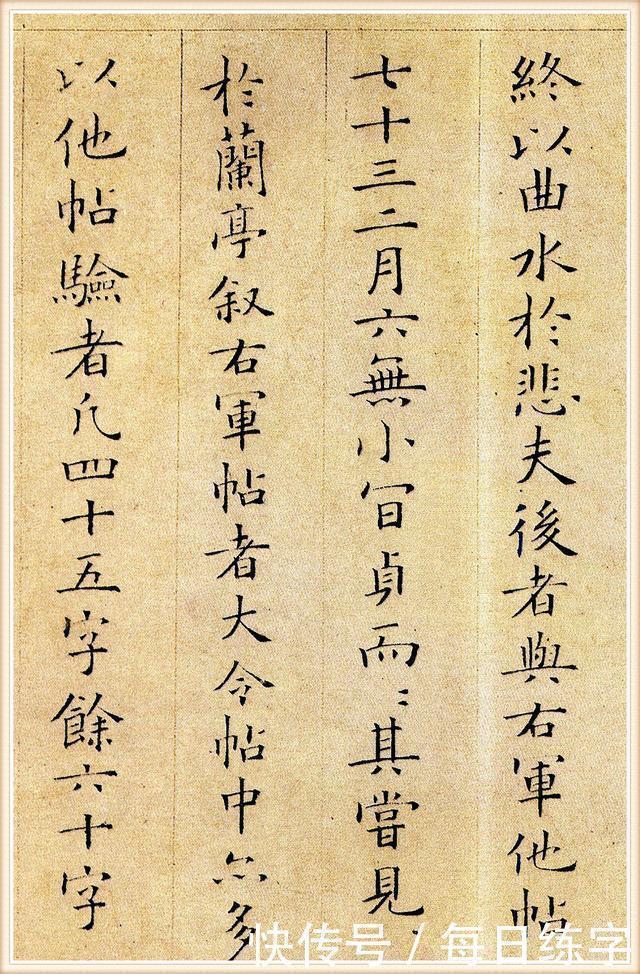 終以曲水於悲夫後者與右軍他帖
七十三二月六無小貞而〻其嘗見
於蘭亭叙右軍帖者大令帖中亦多
以他帖驗者凡四十五字餘六十字
快传号 / 每日练字